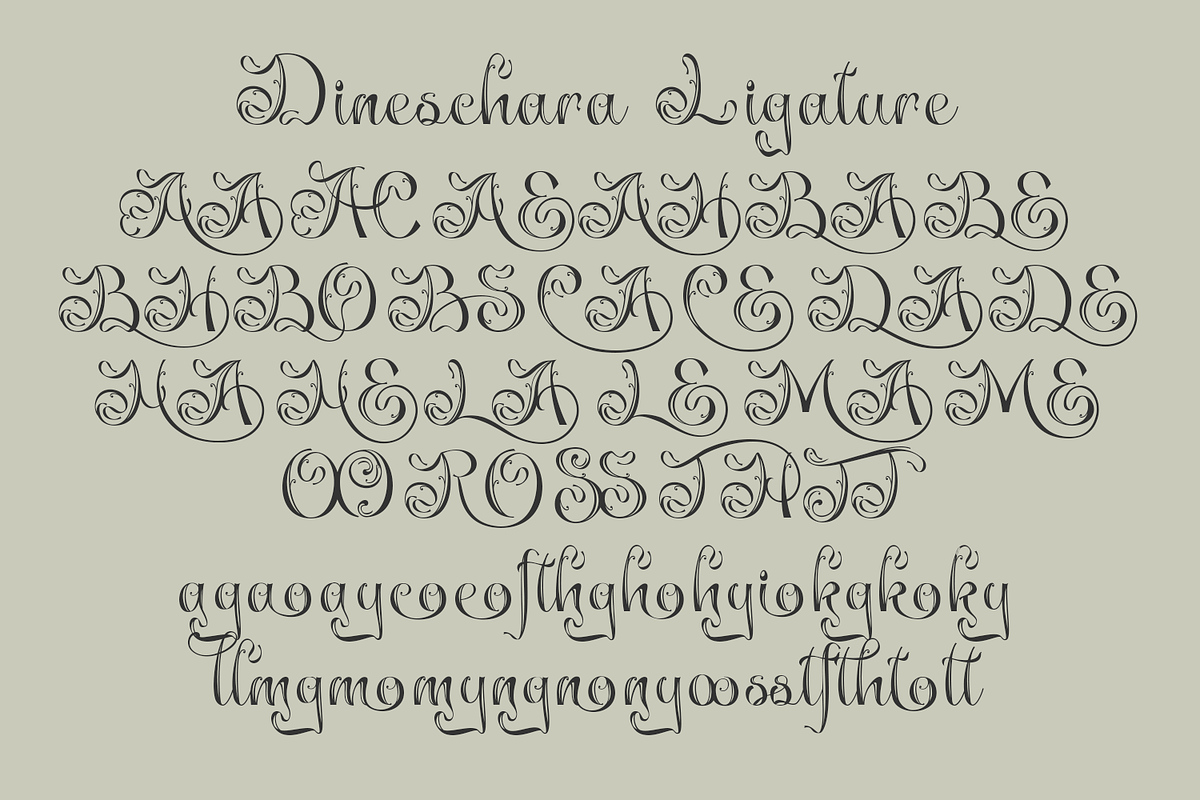 Dineschara Ligature
AA AC AE AH BA BE
BH BO BS CA CE DA DE
HA HE LA LE MA ME
OO RO SS TH TT
agaoaycoeofthghohyiokgkoky
llmgmomyngnonyoosstfthtott